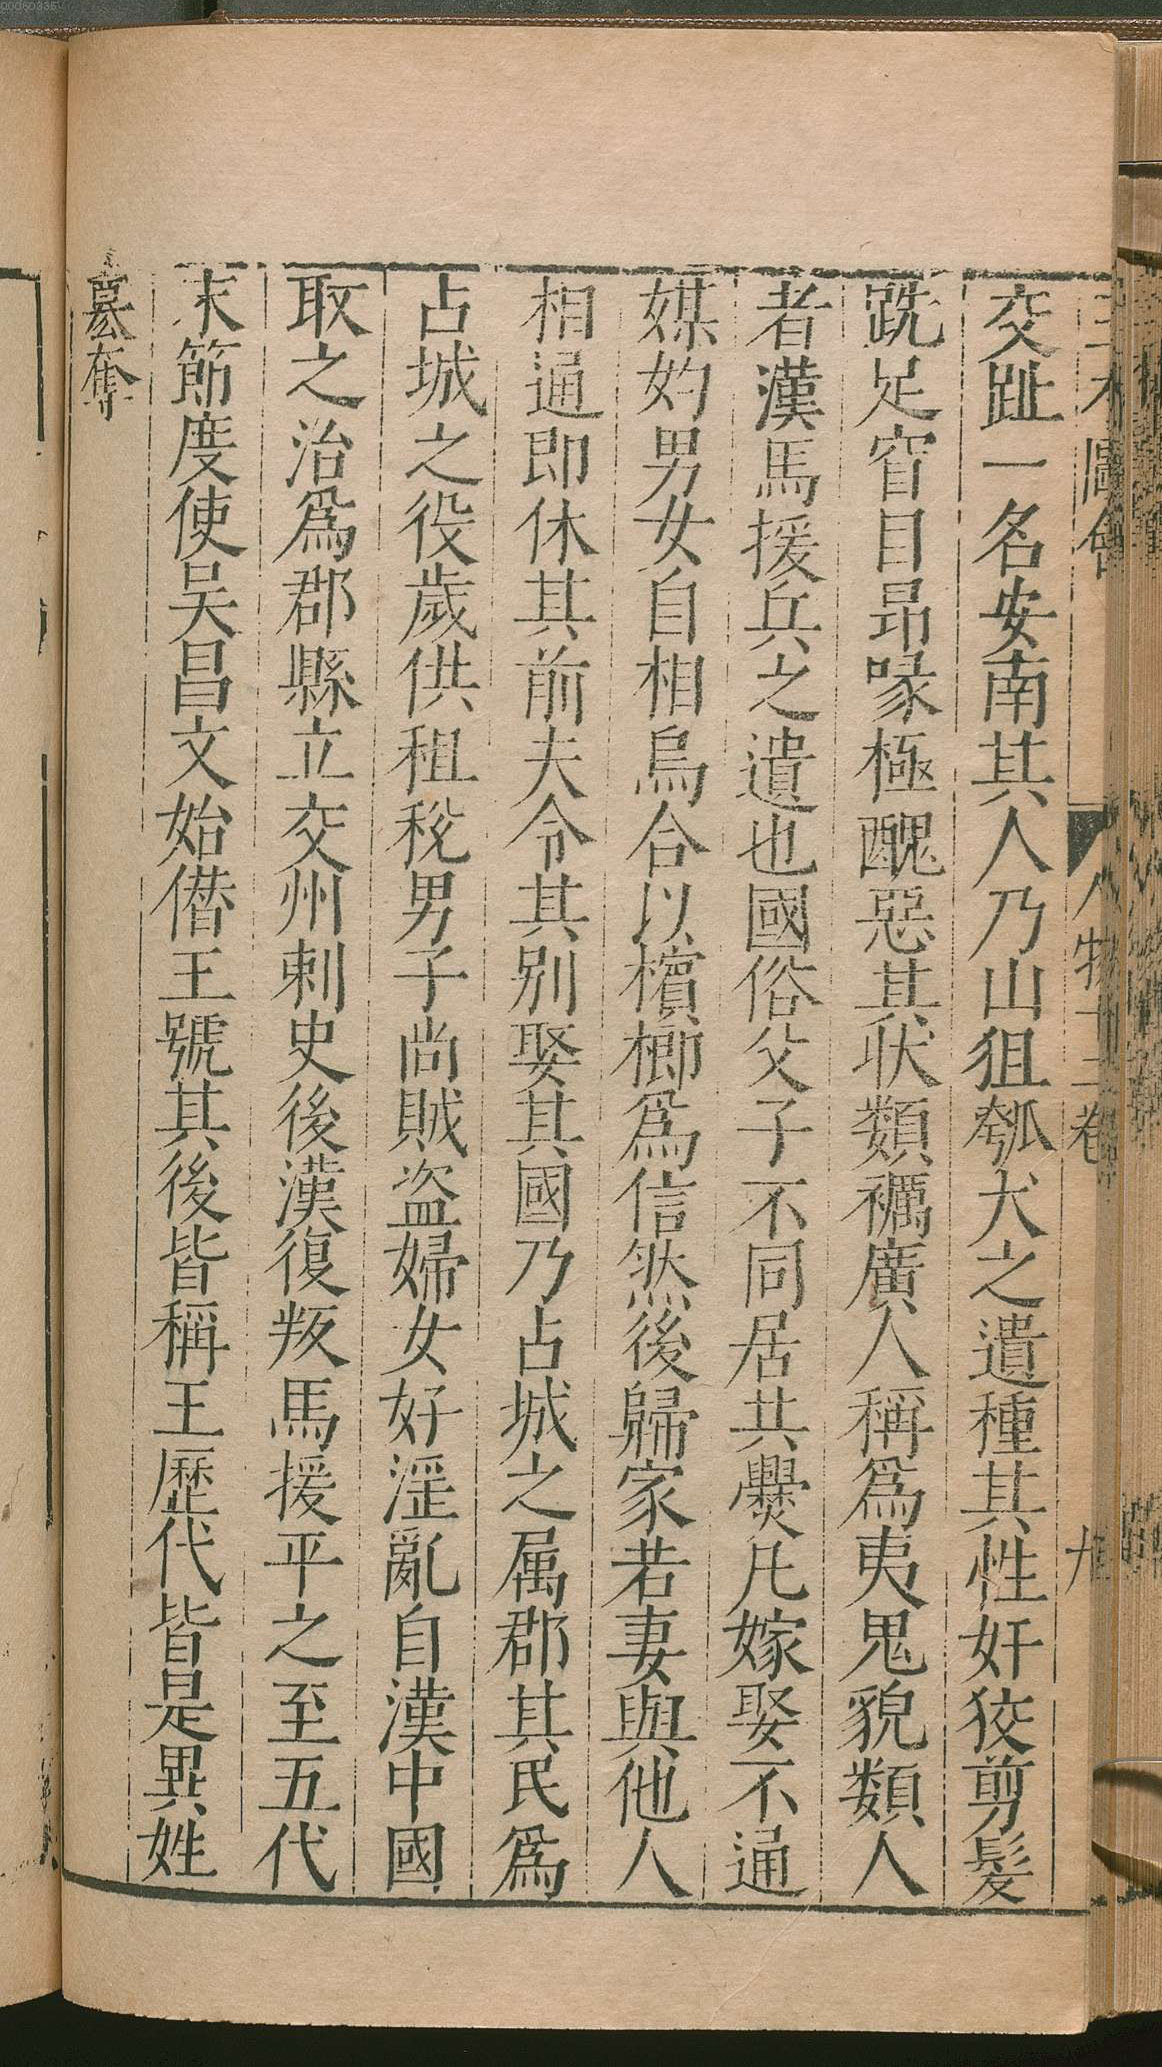 交趾一名安南其人乃山狙瓠犬之遺種其性奸狡剪髮
跣足窅目昻喙極醜惡其状類獼廣人稱爲夷鬼貌類人
者漢馬援兵之遺也國俗父子不同居共爨凡嫁娶不通
媒妁男女自相烏合以檳榔爲信然後歸家若妻與他人
相通即休其前夫令其别娶其國乃占城之属郡其民爲
占城之役歲供租稅男子尚賊盗婦女好淫亂自漢中國
取之治爲郡縣立交州剌史後漢復叛馬援平之至五代
末節度使吴昌文始僣王號其後皆稱王歷代皆是異姓
簒奪
圖會
人物十二卷
九
00080335